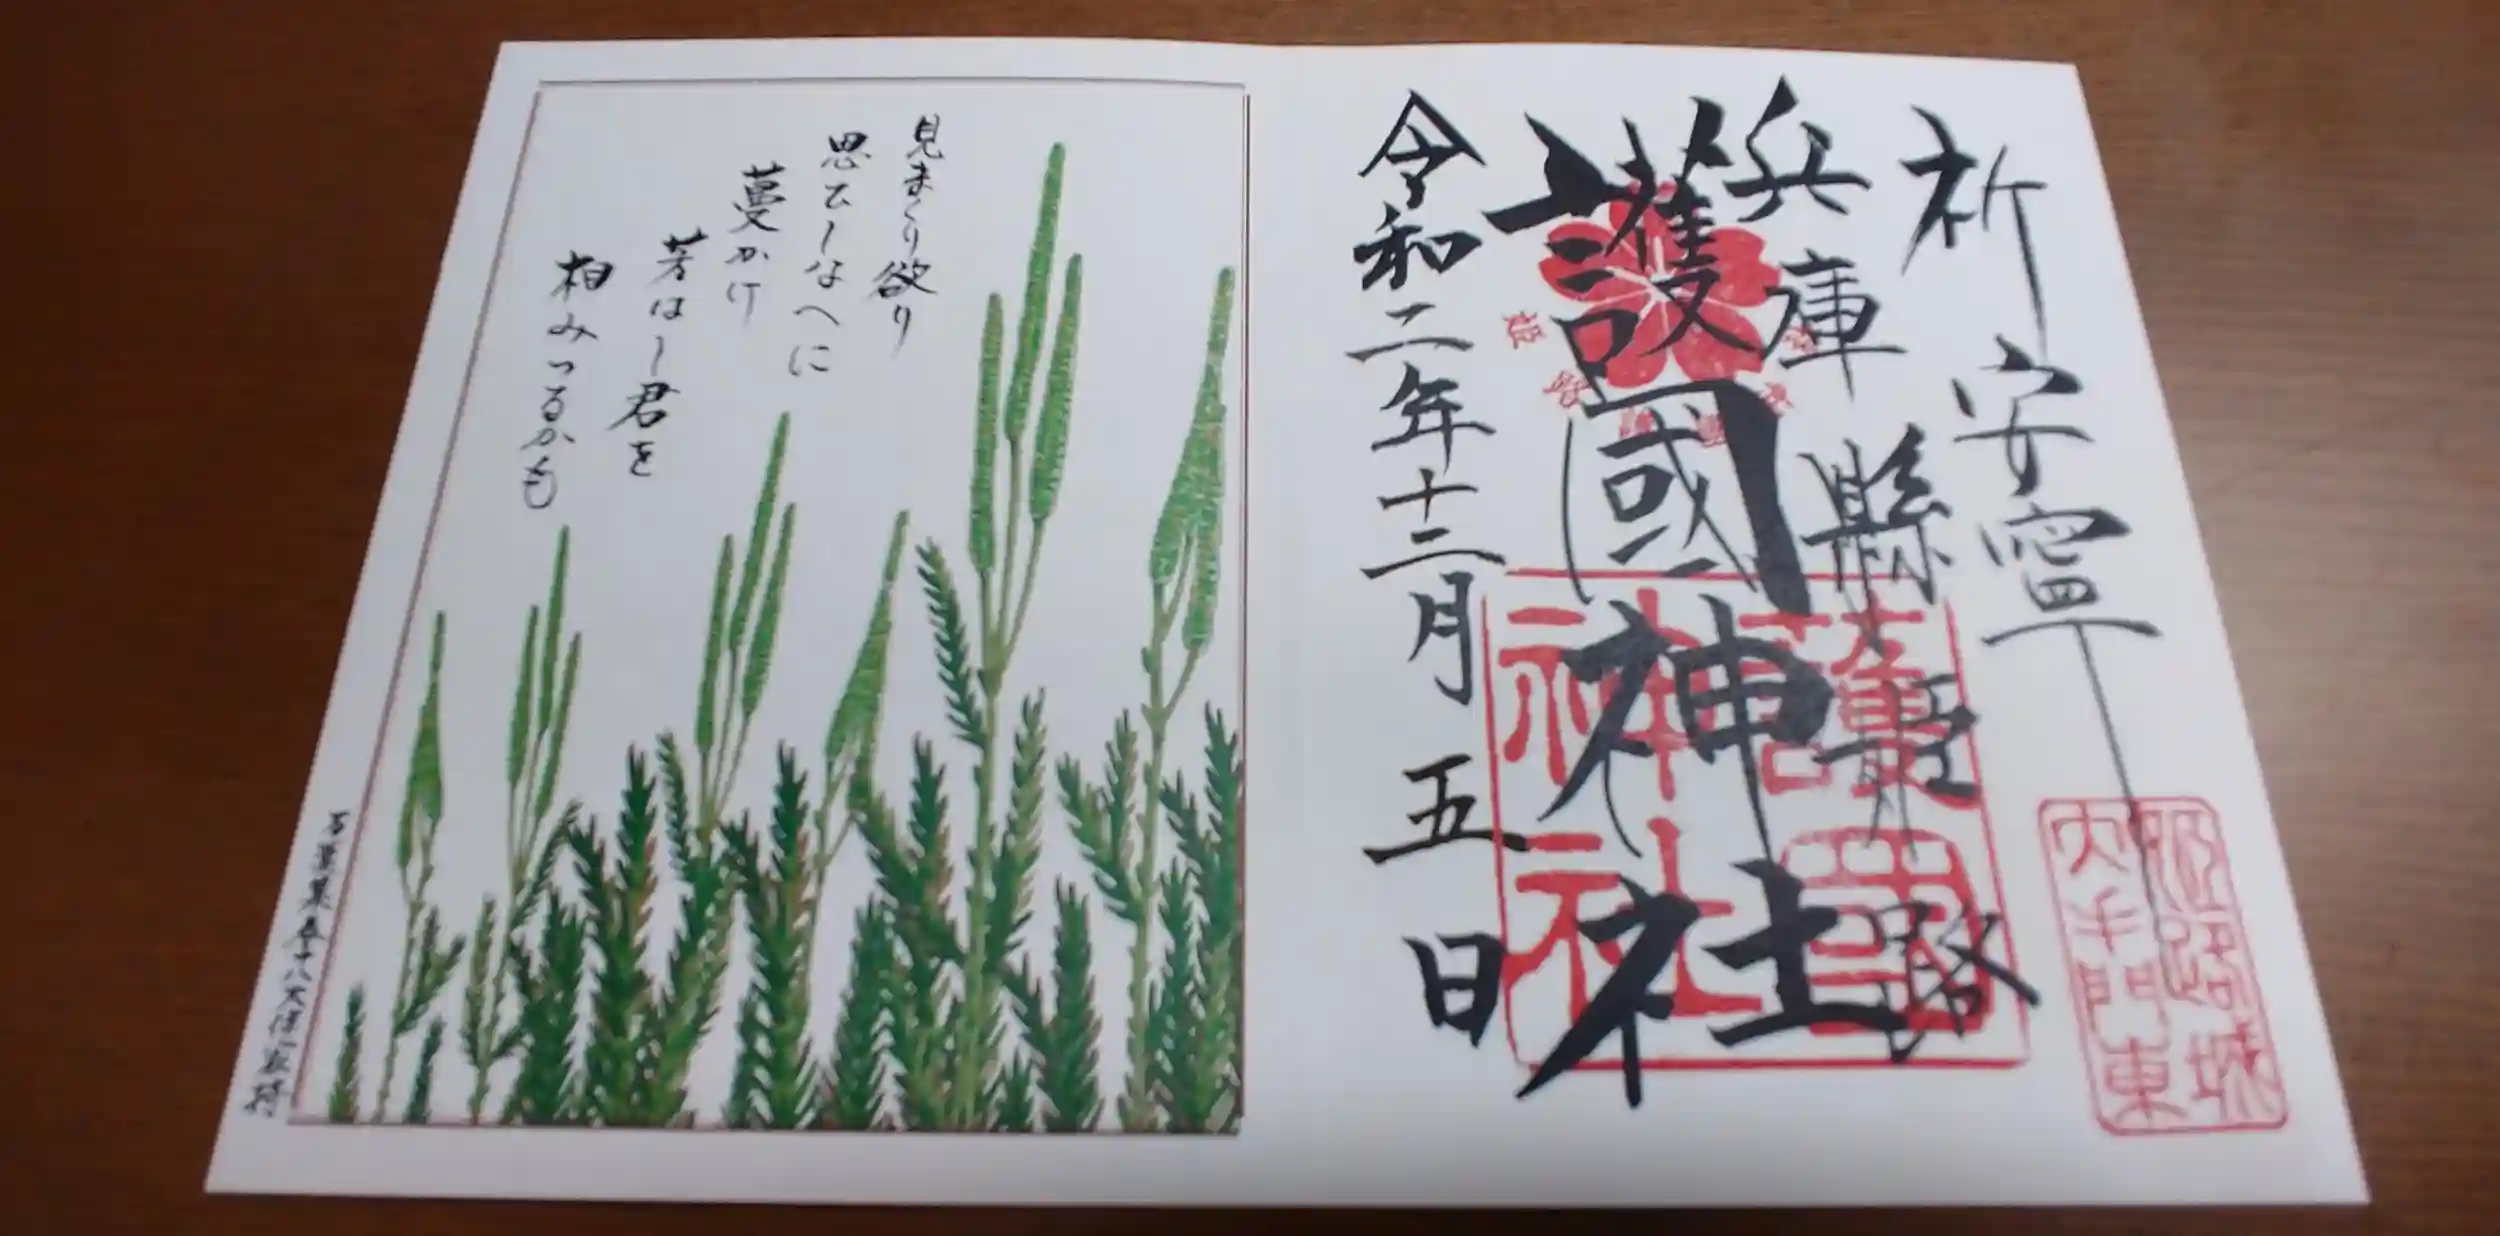 祈安寧
兵庫縣姫路
護國神社
令和二年十二月五日
護國
神社
姫路城
大手門東
見まくり欲り
思ひしなへに
蔓かけ
芳はし君を
相みつるかも
万葉集巻十八大伴家持